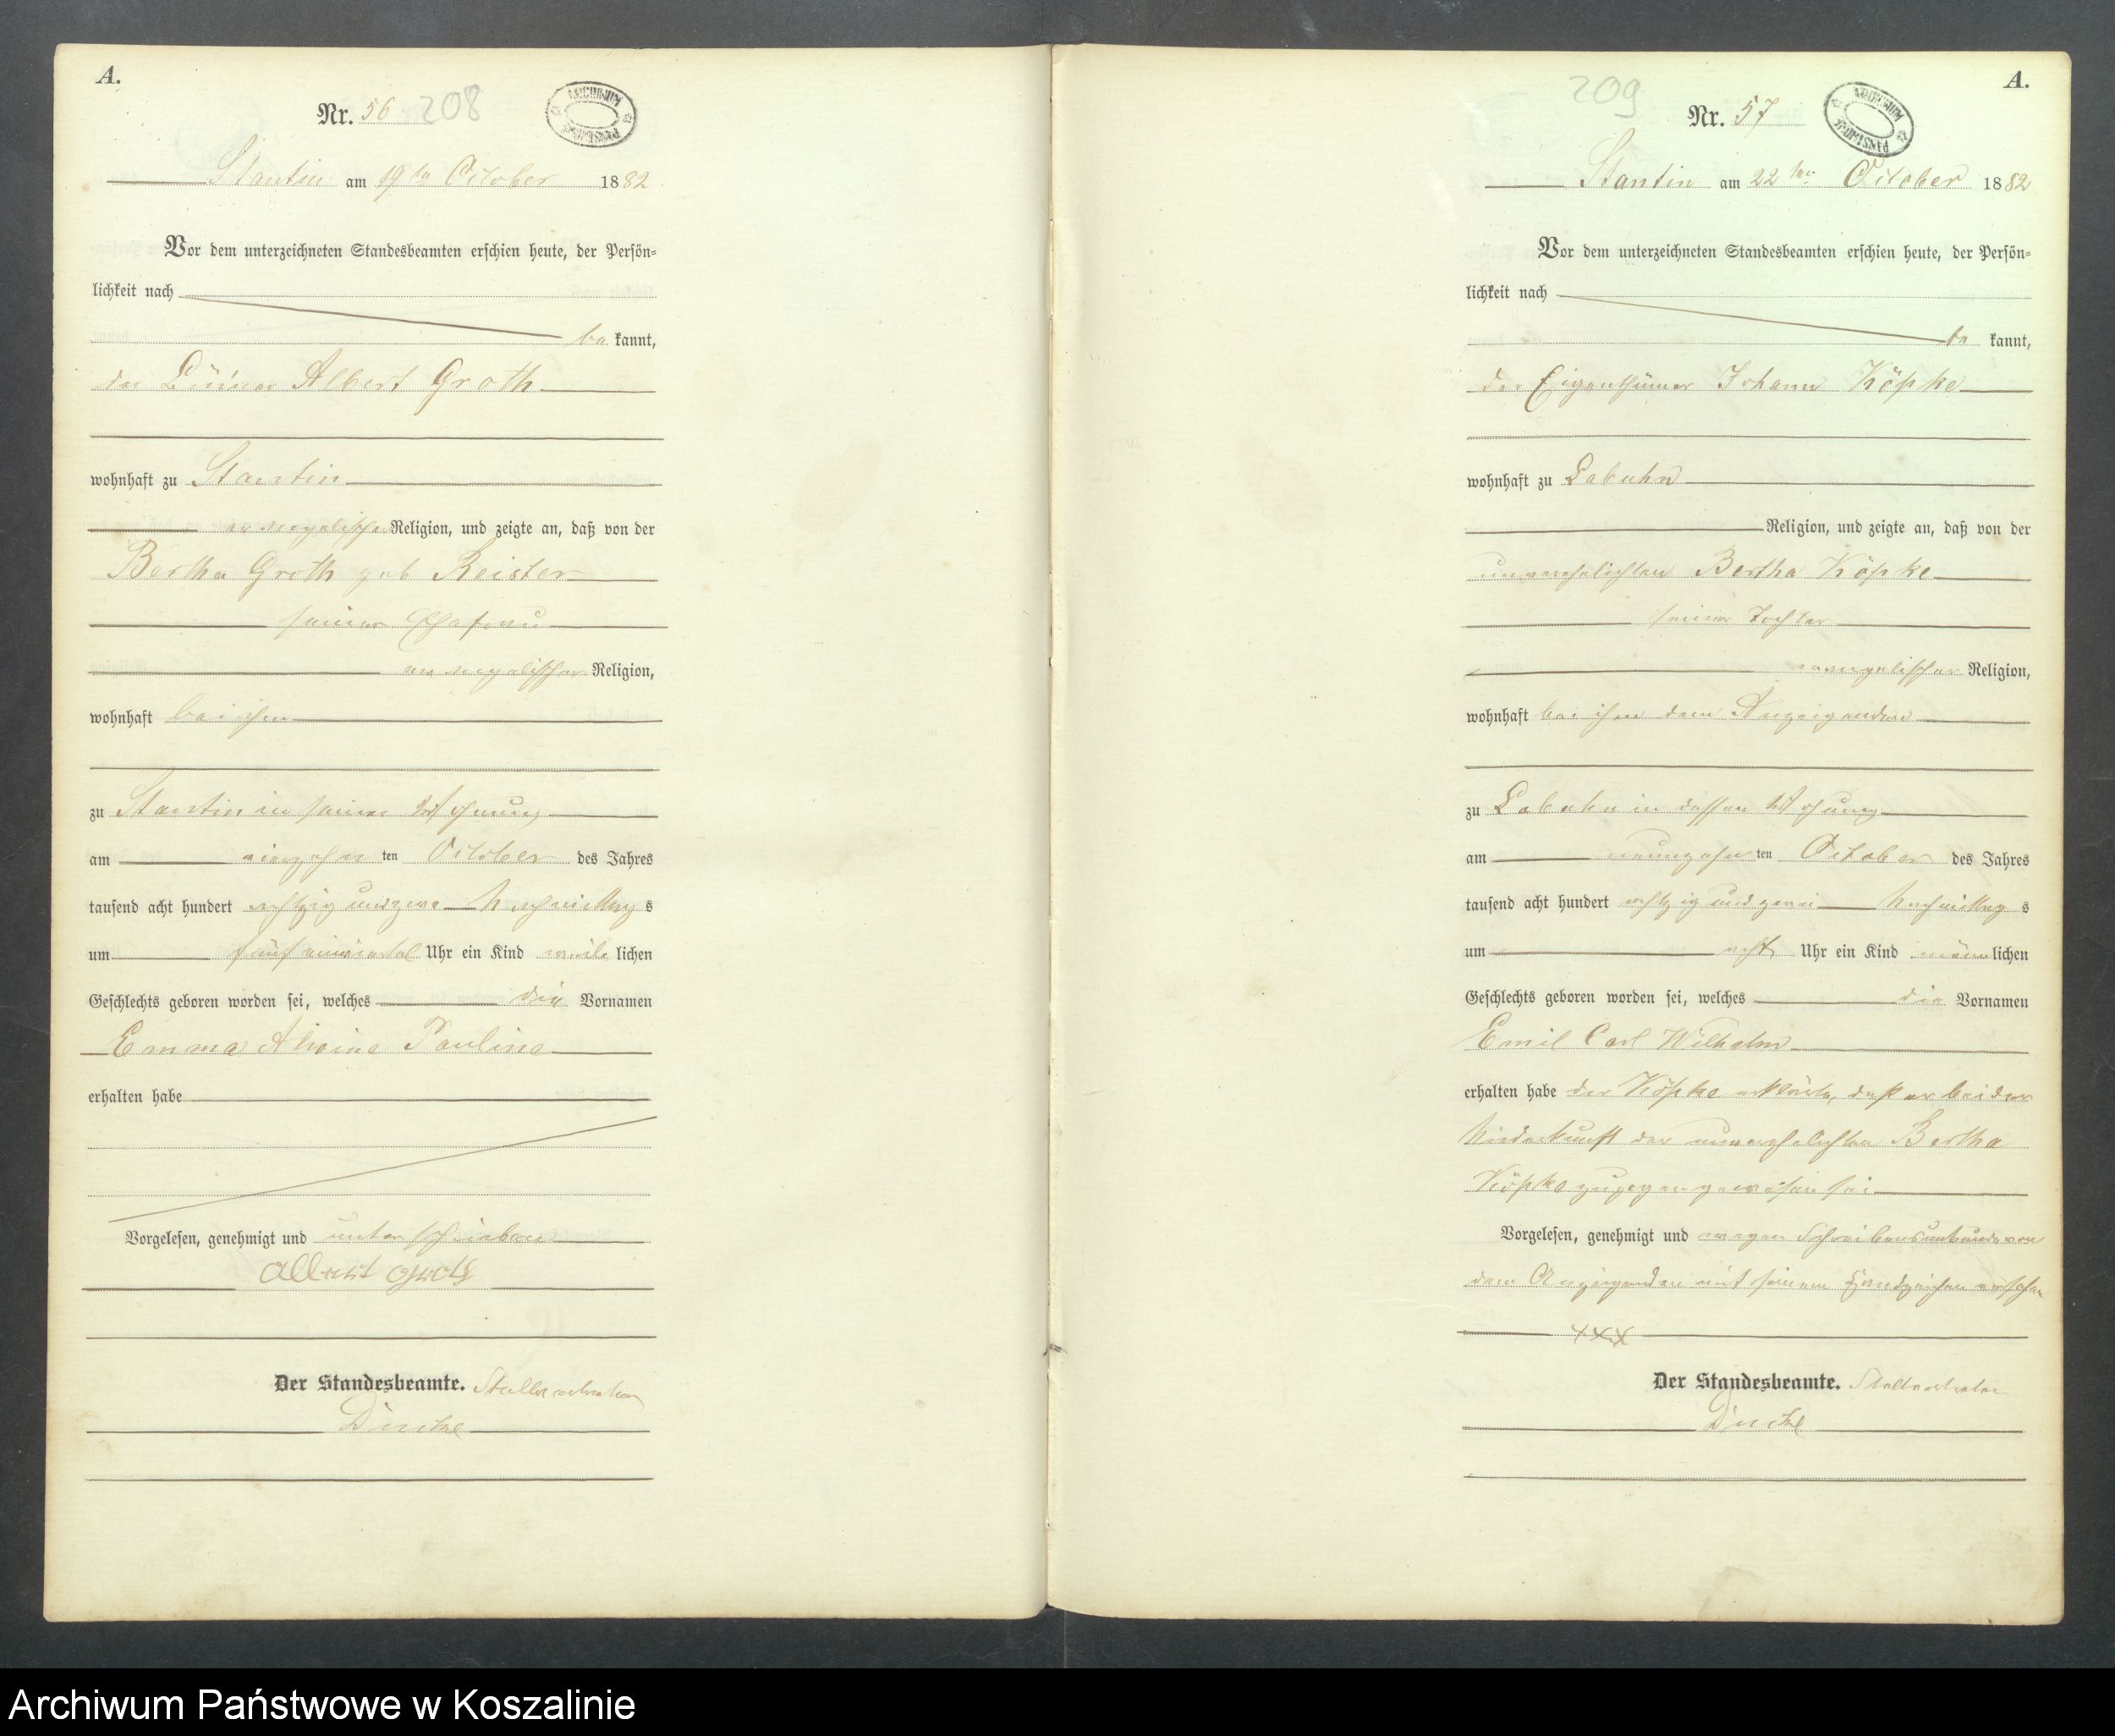 A.
Nr. 56 208
ARCHIWUM PAŃSTWOWE
Stantin am 19ten October 1882
Vor dem unterzeichneten Standesbeamten erschien heute, der Persön=
lichkeit nach
be kannt,
der Albert Groth
wohnhaft zu Stantin
evangelischer Religion, und zeigte an, daß von der
Bertha Groth geb Reister
seiner Ehefrau
evangelischer Religion,
wohnhaft bei ihm
zu Stantin in seiner Wohnung
am ten October des Jahres
tausend acht hundert achtzig und zwei Nachmittag s
um fünf einviertel Uhr ein Kind weib lichen
Geschlechts geboren worden sei, welches die Vornamen
Emma Alwine Pauline
erhalten habe
Vorgelesen, genehmigt und unterschrieben
Albert Groth
Der Standesbeamte. Stellvertreter
A.
209 Nr. 57
ARCHIWUM PAŃSTWOWE
Stantin am 22ten October 1882
Vor dem unterzeichneten Standesbeamten erschien heute, der Persön=
lichkeit nach
be kannt,
der Eigenthümer Johann Köpke
wohnhaft zu Labuhn
Religion, und zeigte an, daß von der
unverehelichten Bertha Köpke
seiner Tochter
evangelischer Religion,
wohnhaft bei ihm dem Anzeigenden
zu Labuhn in dessen Wohnung
am neunzehn ten October des Jahres
tausend acht hundert achtzig und zwei Nachmittag s
um acht Uhr ein Kind männ lichen
Geschlechts geboren worden sei, welches die Vornamen
Emil Carl Wilhelm
erhalten habe der Köpke erklärte, daß er bei der
Niederkunft der unverehelichten Bertha
Köpke zugegen gewesen sei
Vorgelesen, genehmigt und wegen Schreibensunkunde von
dem Anzeigenden mit seinem Handzeichen versehen
xxx
Der Standesbeamte. Stellvertreter
Archiwum Państwowe w Koszalinie